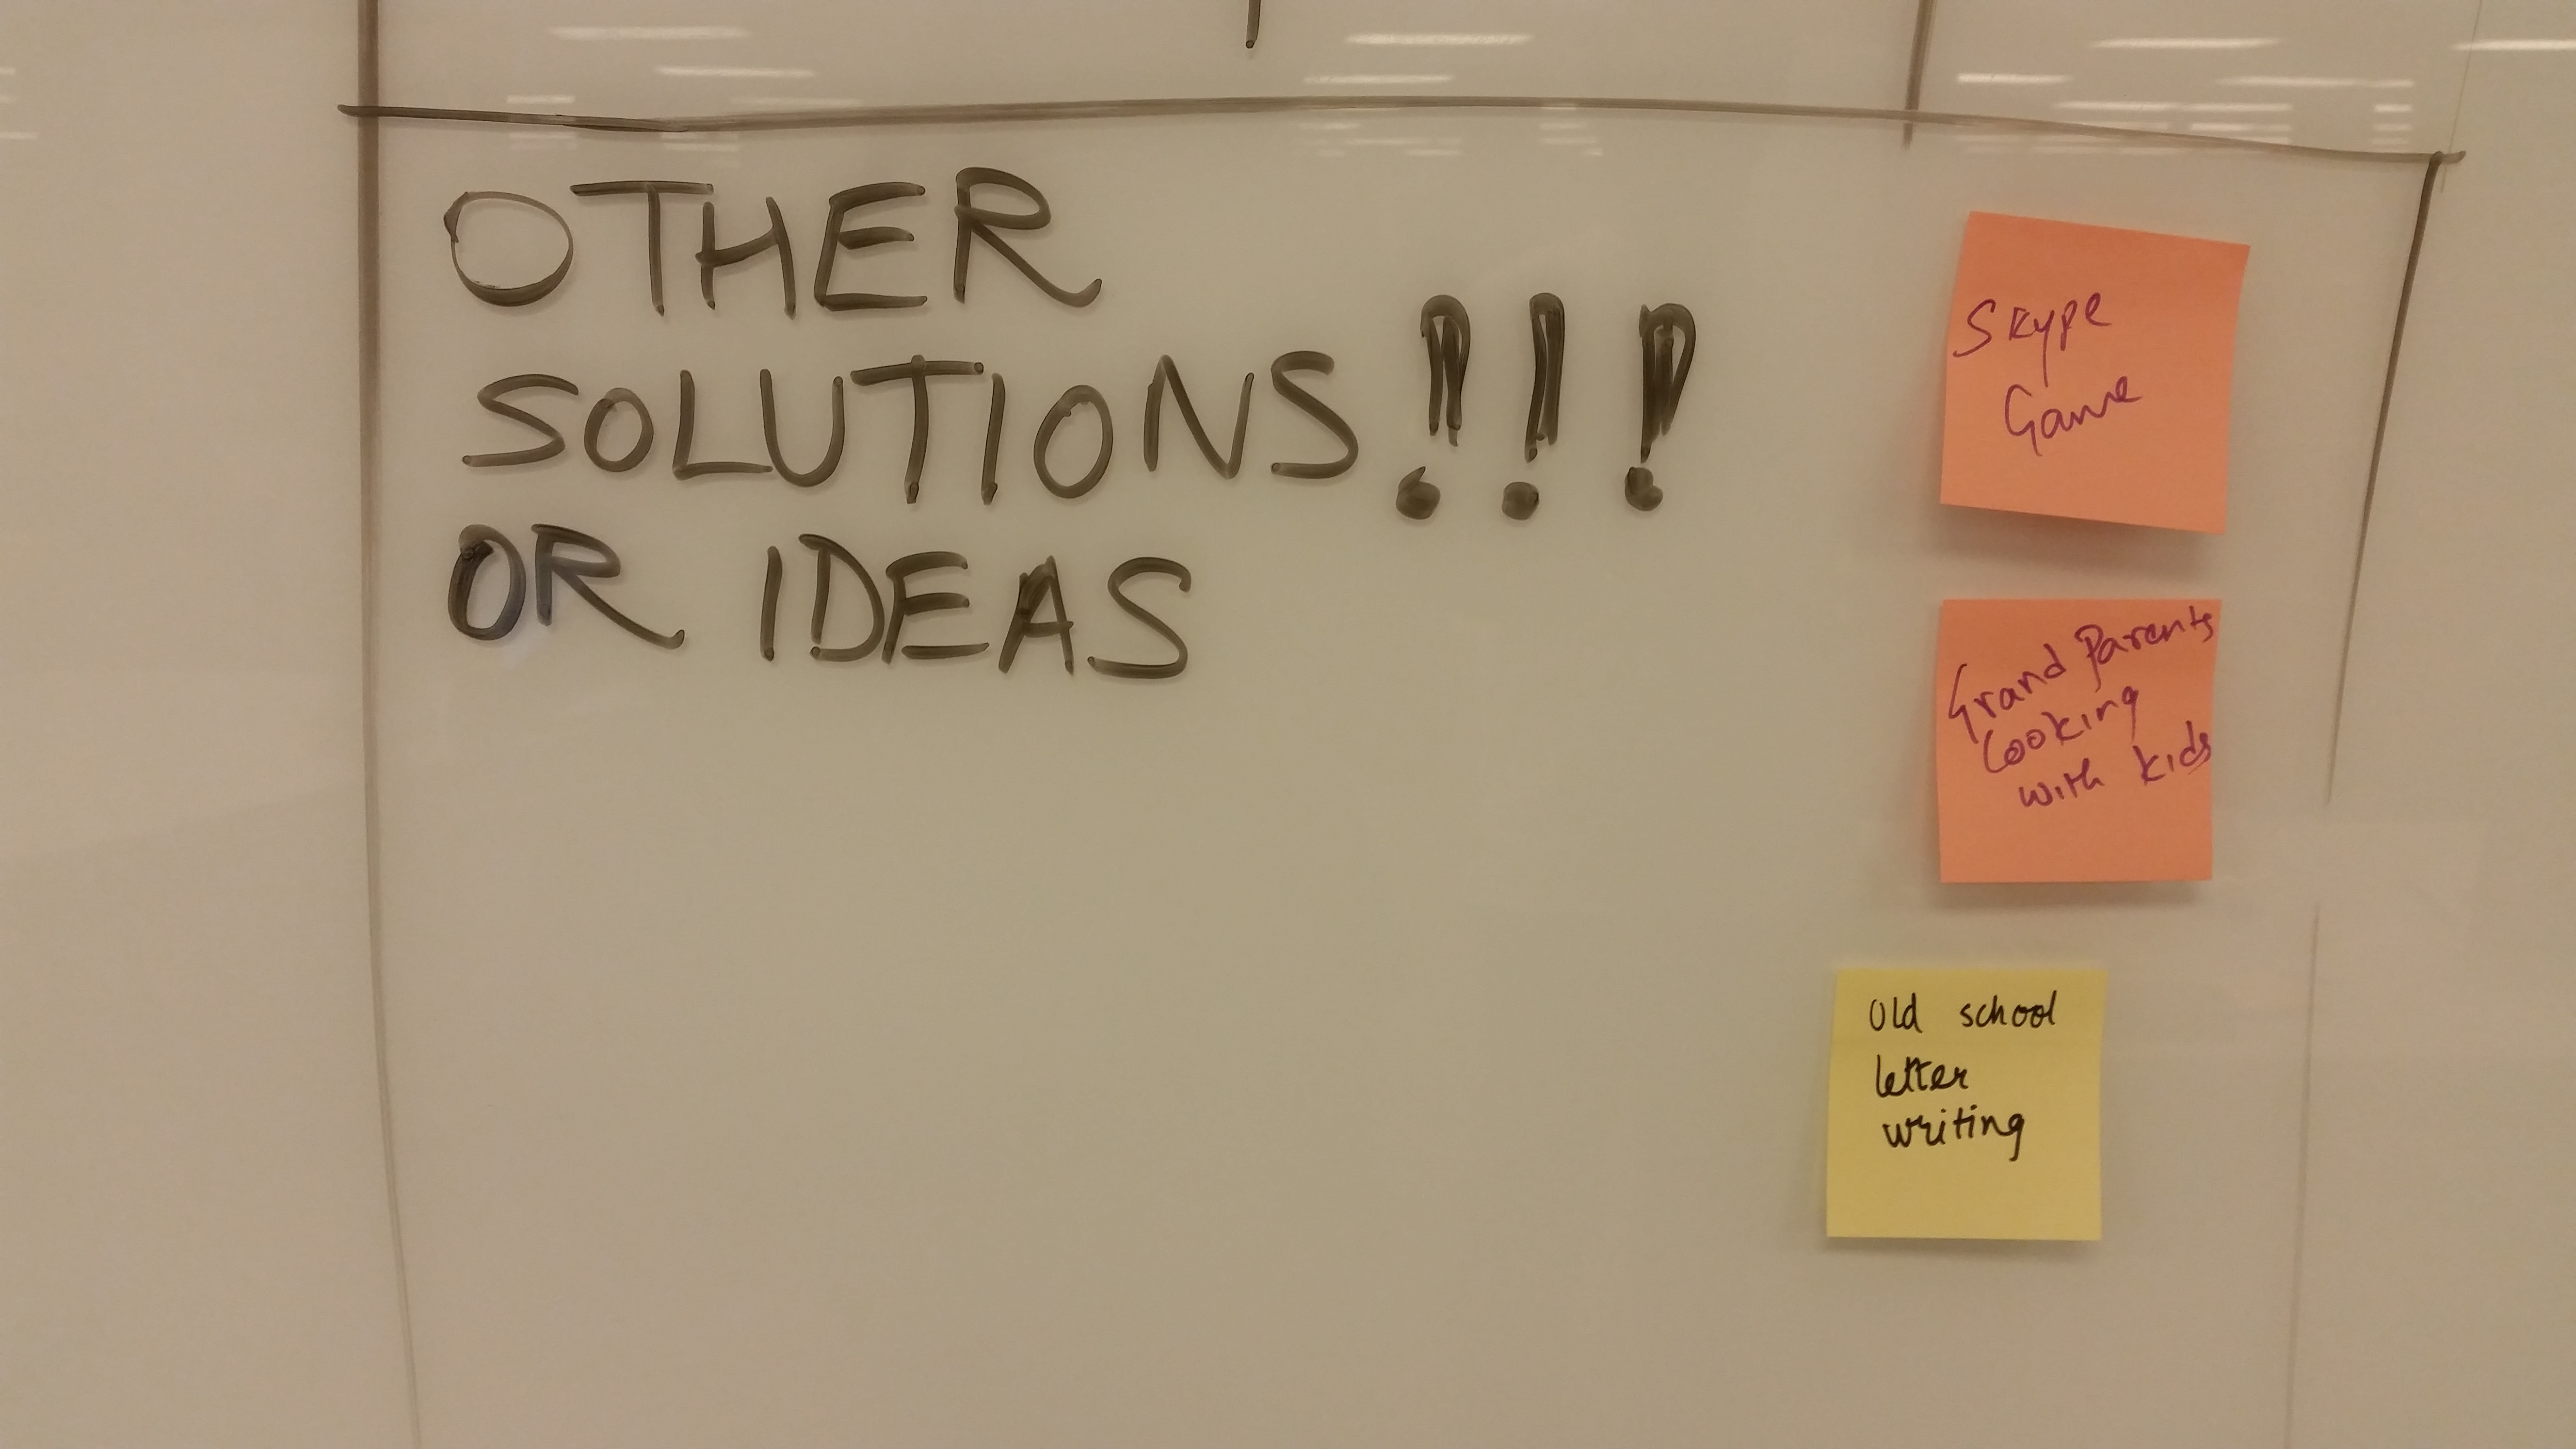 OTHER
SOLUTIONS!!!
OR IDEAS
Skype
Game
Grand Parents
Cooking
with kids
Old school
letter
writing